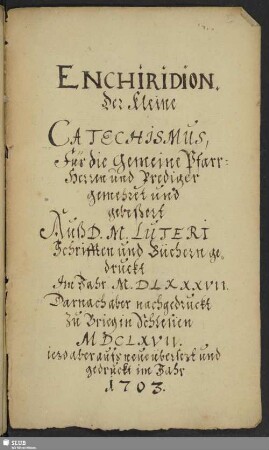 ENCHIRIDION.
Der Kleine
CATECHISMUS,
Für die Gemeine Pfarr=
Herren und Prediger
gemehret und
gebeßert
Auß D. M. LUTERI
Schrifften und Büchern ge,
druckt
Im Jahr M. DLXXXVII.
Darnach aber nachgedruckt
Zu Brieg in Schlesien
MDCLXVII.
iezo aber aufs neue übersezt und
gedruckt im Jahr
1703.
SLUB